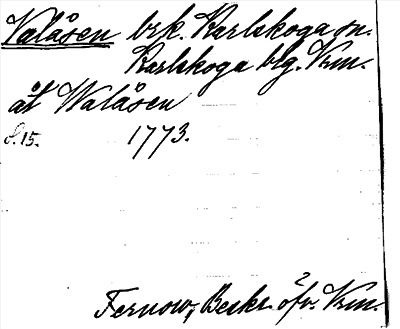 Valåsen brk. Karlskoga sn.
Karlskoga blg. Vrm.
åt Walåsen
S. 15. 1773.
Fernow, Beskr. öfv. Vrm.